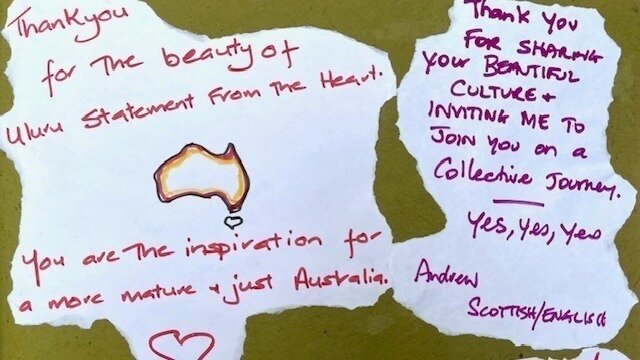 Thankyou
for The beauty of
Uluru Statement From The Heart.
You are The inspiration for
a more mature + just Australia.
Thank You
FOR SHARING
YOUR BEAUTIFUL
CULTURE +
INVITING ME TO
JOIN YOU on a
Collective Journey.
Yes, Yes, Yes
Andrew
SCOTTISH/ENGLISH